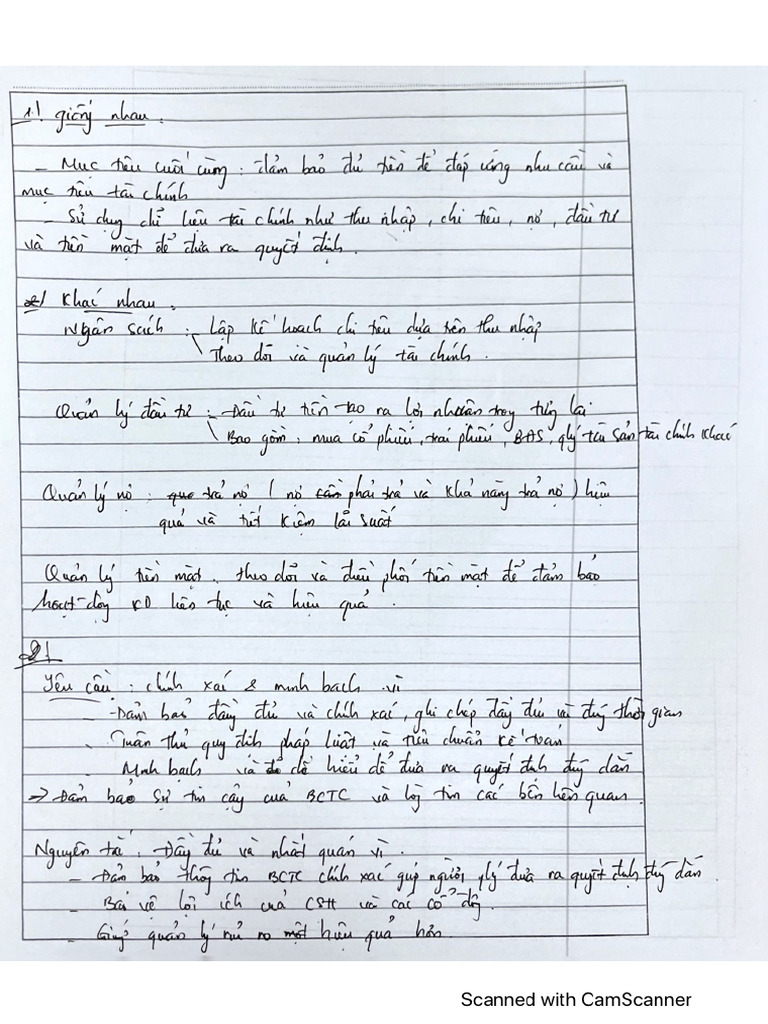 1.1 giống nhau.
- Mục tiêu cuối cùng : đảm bảo đủ tiền để đáp ứng nhu cầu và
mục tiêu tài chính
- Sử dụng dữ liệu tài chính như thu nhập, chi tiêu, nợ, đầu tư
và tiền mặt để đưa ra quyết định.
Khác nhau.
Ngân sách : - Lập kế hoạch chi tiêu dựa trên thu nhập
Theo dõi và quản lý tài chính.
Quản lý đầu tư : - Đầu tư tiền tạo ra lợi nhuận trong tương lai
Bao gồm : mua cổ phiếu, trái phiếu, BĐS, qlý tài sản tài chính khác
Quản lý nợ : trả nợ ( nợ phải trả và khả năng trả nợ ) hiệu
quả và tiết kiệm lãi suất
Quản lý tiền mặt. theo dõi và điều phối tiền mặt để đảm bảo
hoạt động KD liên tục và hiệu quả.
2.1
Yêu cầu : chính xác & minh bạch vì
- Đảm bảo đầy đủ và chính xác, ghi chép đầy đủ và đúng thời gian
- Tuân thủ quy định pháp luật và tiêu chuẩn kế toán
- Minh bạch và dễ hiểu để đưa ra quyết định đúng đắn
-> Đảm bảo sự tin cậy của BCTC và lòng tin các bên liên quan.
Nguyên tắc : Đầy đủ và nhất quán vì.
- Đảm bảo thông tin BCTC chính xác giúp người qlý đưa ra quyết định đúng đắn.
- Bảo vệ lợi ích của CSH và các cổ đông.
- Giúp quản lý rủi ro một hiệu quả hơn.
Scanned with CamScanner